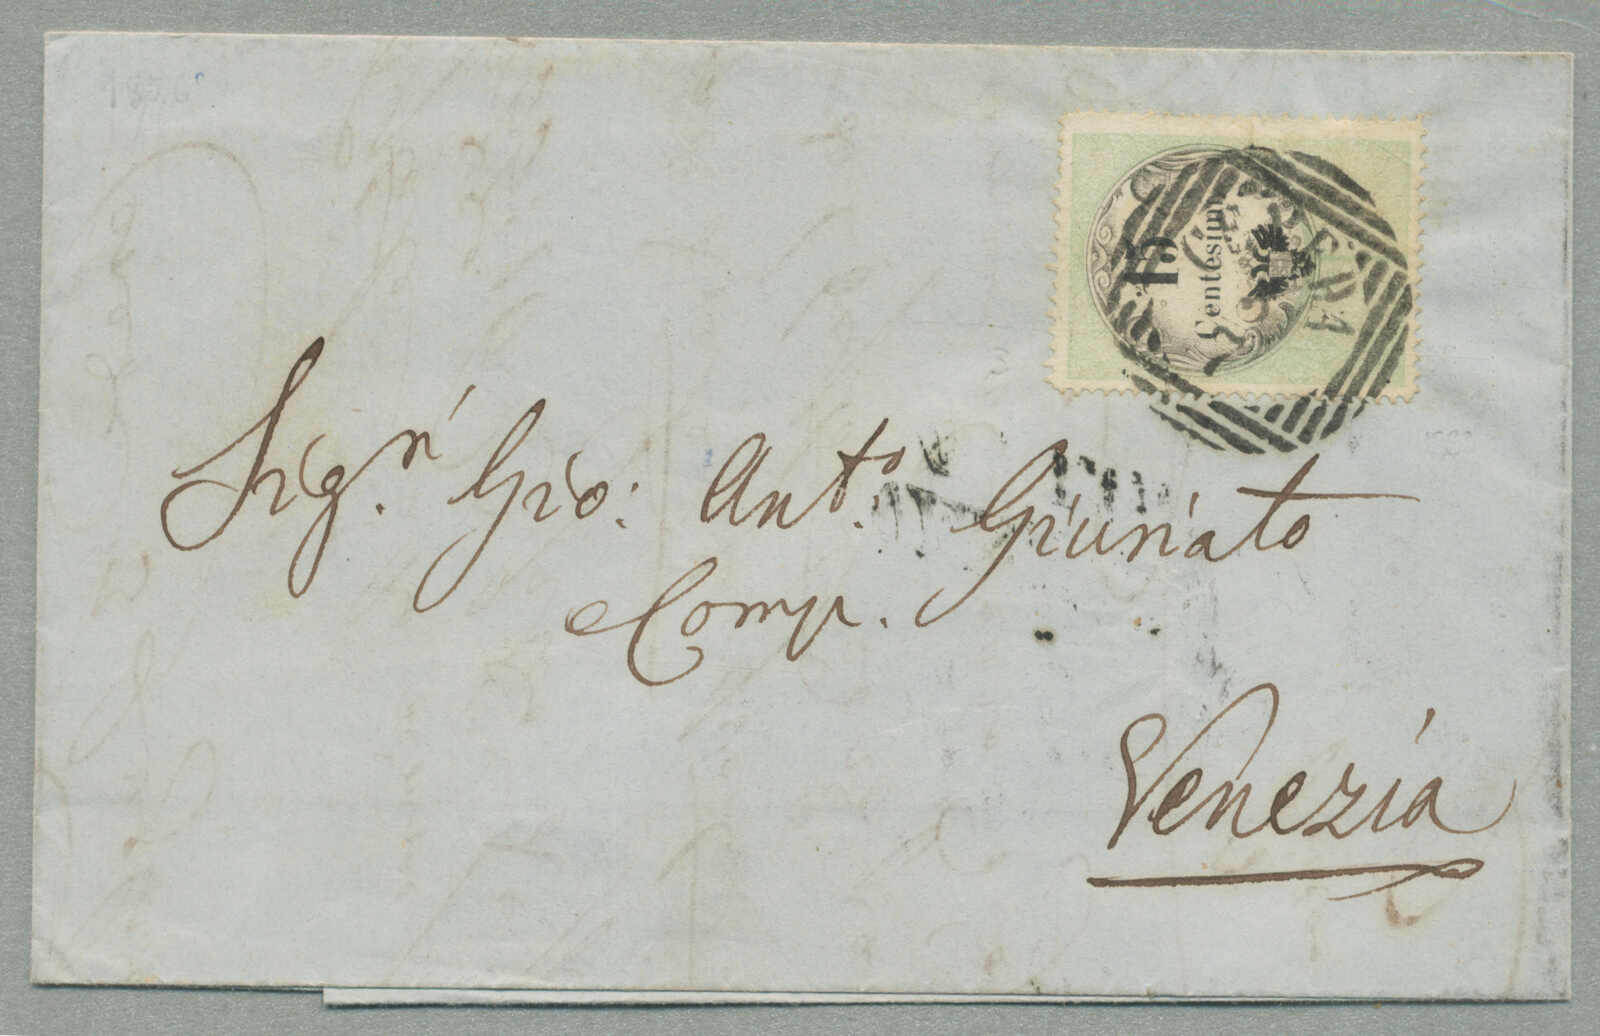 15
Centesimi
Sigr. Gio: Anto. Giuriato
Comp.
Venezia